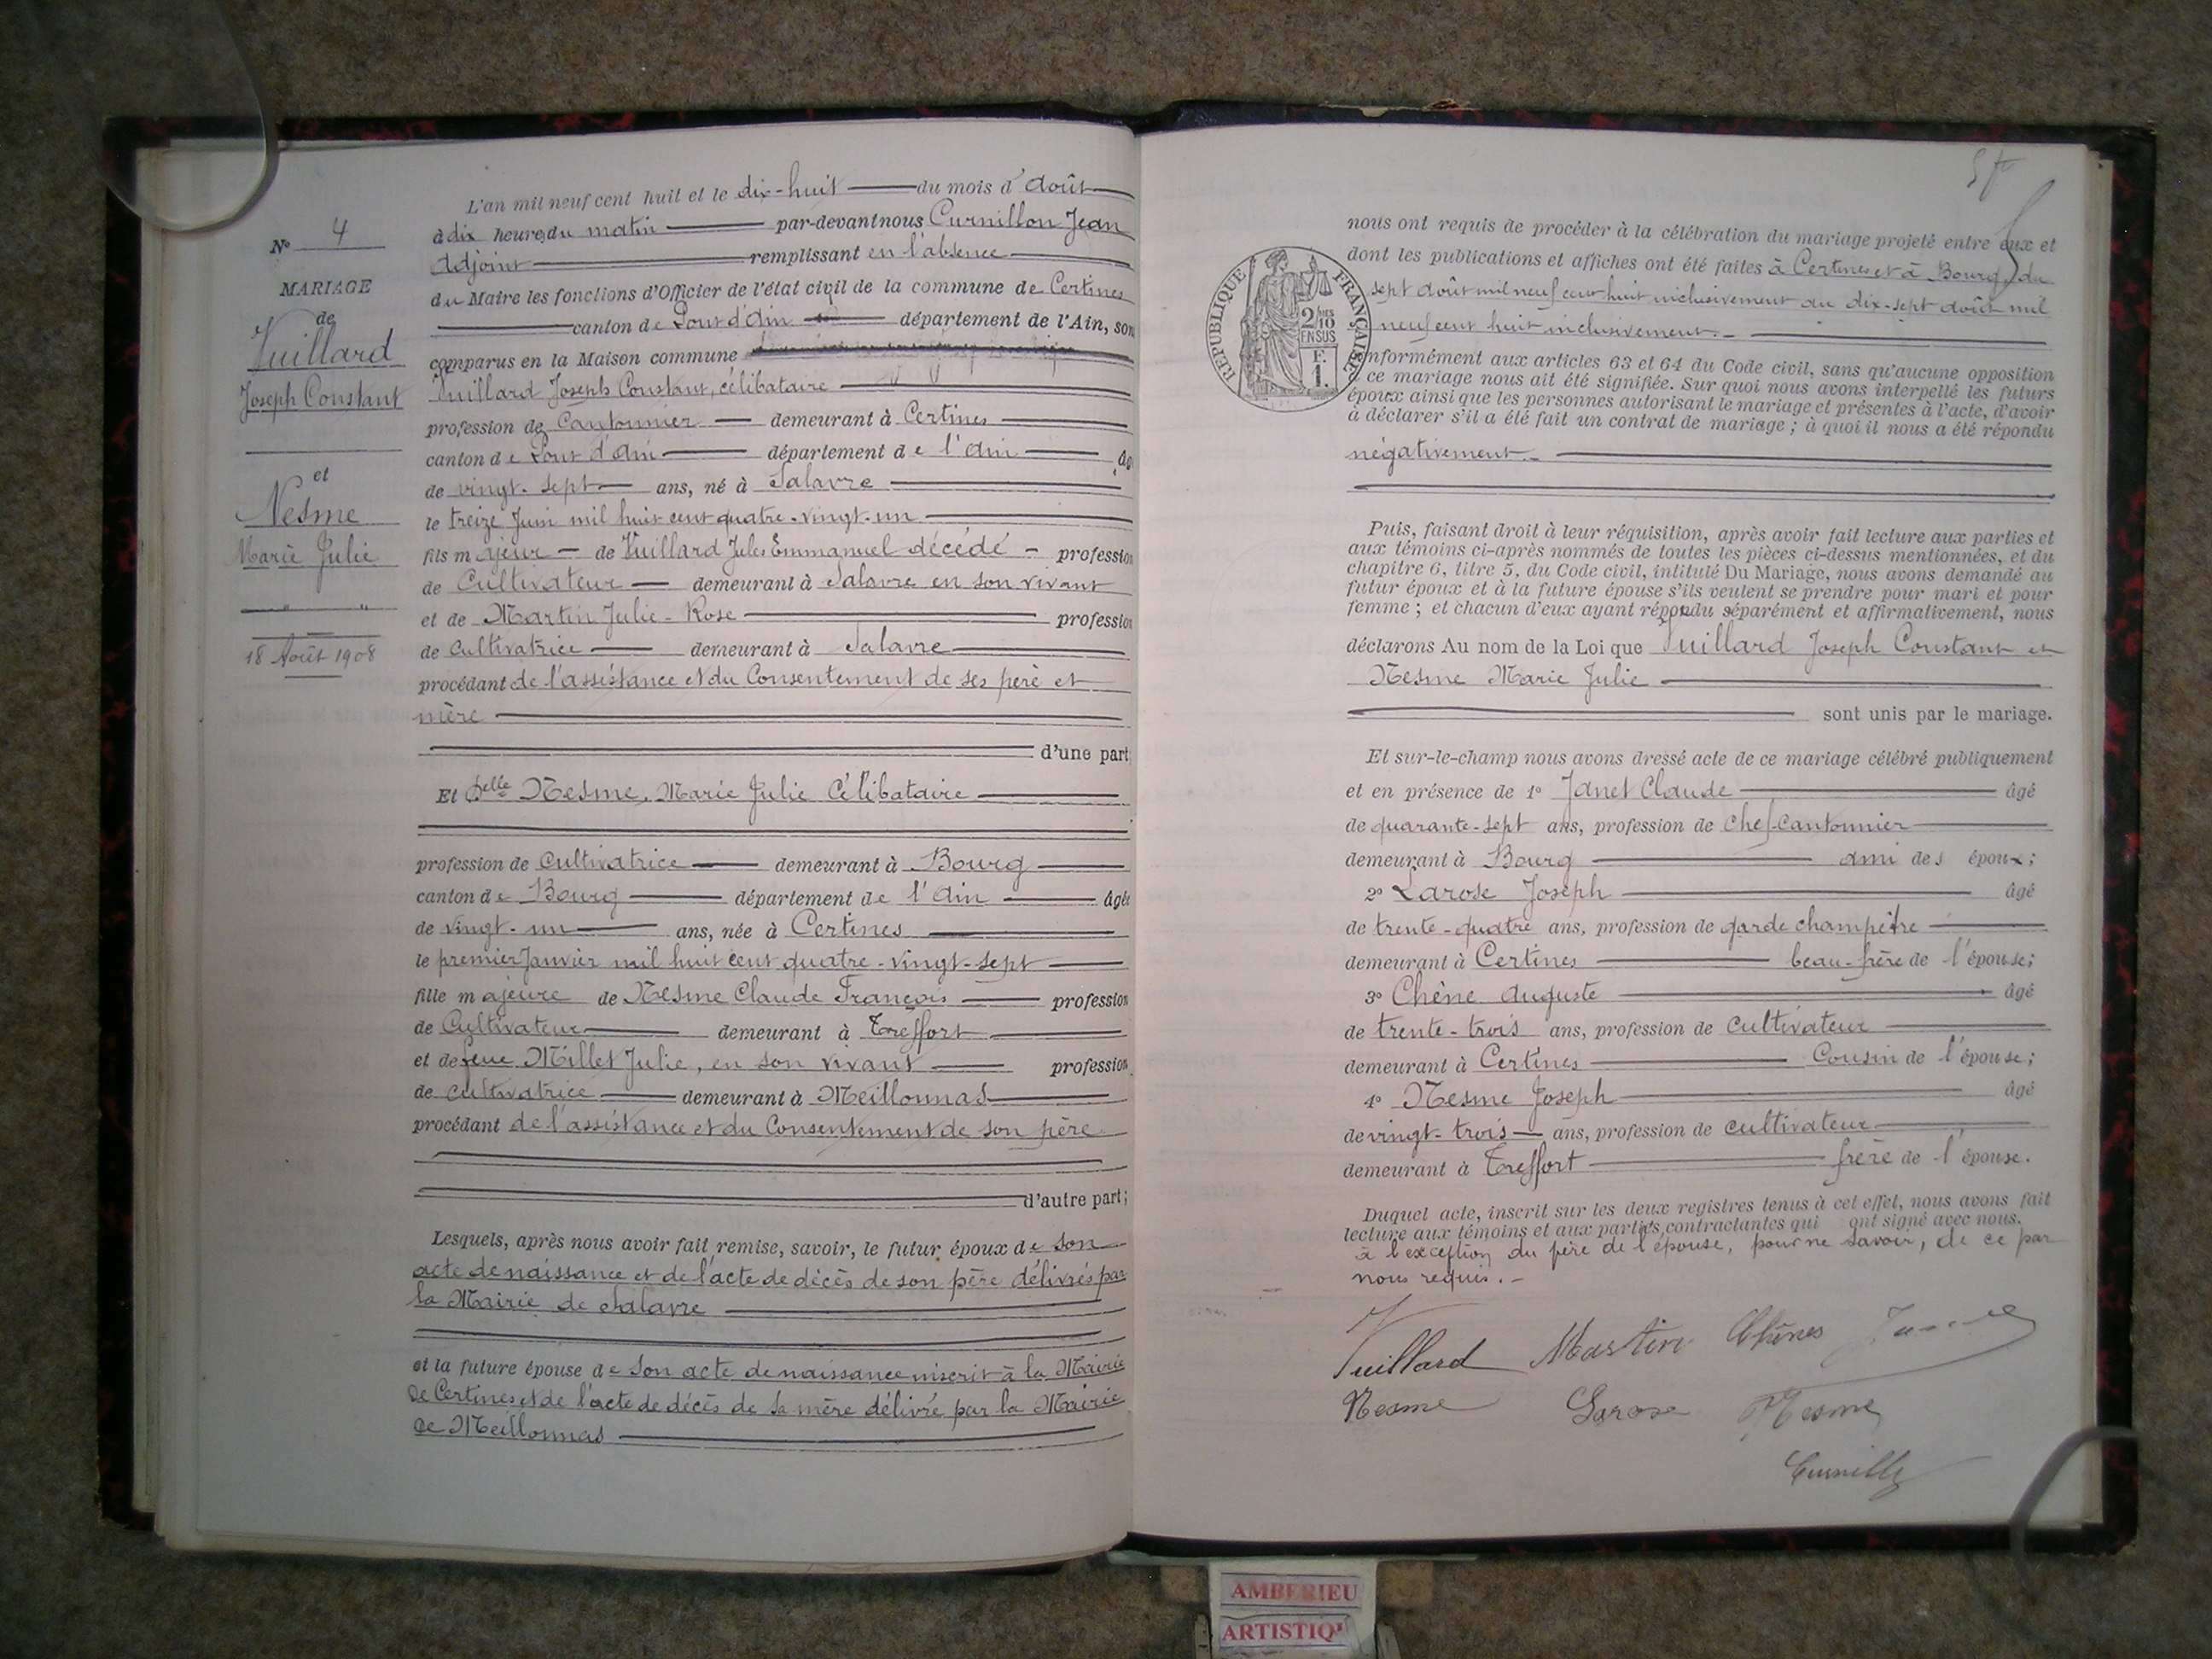 L'an mil neuf cent huit et le dix-huit du mois d'Août
N° 4
à dix heures du matin par-devant nous Curnillon Jean
Adjoint remplissant en l'absence
MARIAGE
du Maire les fonctions d'Officier de l'état civil de la commune de Certines
de
canton de Pont d'Ain département de l'Ain, son
Vuillard
comparus en la Maison commune
Joseph Constant
Vuillard Joseph Constant, célibataire
profession de Cantonnier demeurant à Certines
canton de Pont d'Ain département de l'Ain âg
et
de vingt-sept ans, né à Salavre
Nesme
le treize Juin mil huit cent quatre-vingt-un
Marie Julie
fils majeur de Vuillard Jules Emmanuel décédé profession
de Cultivateur demeurant à Salavre en son vivant
et de Martin Julie-Rose profession
18 Août 1908
de Cultivatrice demeurant à Salavre
procédant de l'assistance et du Consentement de ses père et
mère
d'une part
Et Delle Nesme, Marie Julie Célibataire
profession de Cultivatrice demeurant à Bourg
canton de Bourg département de l'Ain âgée
de vingt-un ans, née à Certines
le premier Janvier mil huit cent quatre-vingt-sept
fille majeure de Nesme Claude François profession
de Cultivateur demeurant à Treffort
et de feue Millet Julie, en son vivant profession
de cultivatrice demeurant à Meillonnas
procédant de l'assistance et du Consentement de son père
d'autre part;
Lesquels, après nous avoir fait remise, savoir, le futur époux de son
acte de naissance et de l'acte de décès de son père délivrés par
la Mairie de Salavre
et la future épouse de son acte de naissance inscrit à la Mairie
de Certines et de l'acte de décès de sa mère délivré par la Mairie
de Meillonnas
nous ont requis de procéder à la célébration du mariage projeté entre eux et
dont les publications et affiches ont été faites à Certines et à Bourg du
sept août mil neuf cent huit inclusivement au dix-sept août mil
neuf cent huit inclusivement.
RÉPUBLIQUE FRANÇAISE
2/10 EN SUS
F. 1.
conformément aux articles 63 et 64 du Code civil, sans qu'aucune opposition
à ce mariage nous ait été signifiée. Sur quoi nous avons interpellé les futurs
époux ainsi que les personnes autorisant le mariage et présentes à l'acte, d'avoir
à déclarer s'il a été fait un contrat de mariage ; à quoi il nous a été répondu
négativement.
Puis, faisant droit à leur réquisition, après avoir fait lecture aux parties et
aux témoins ci-après nommés de toutes les pièces ci-dessus mentionnées, et du
chapitre 6, titre 5, du Code civil, intitulé Du Mariage, nous avons demandé au
futur époux et à la future épouse s'ils veulent se prendre pour mari et pour
femme ; et chacun d'eux ayant répondu séparément et affirmativement, nous
déclarons Au nom de la Loi que Vuillard Joseph Constant et
Nesme Marie Julie
sont unis par le mariage.
Et sur-le-champ nous avons dressé acte de ce mariage célébré publiquement
et en présence de 1° Janet Claude âgé
de quarante-sept ans, profession de chef-cantonnier
demeurant à Bourg ami des époux;
2° Larose Joseph âgé
de trente-quatre ans, profession de garde champêtre
demeurant à Certines beau-frère de l'épouse;
3° Chêne Auguste âgé
de trente-trois ans, profession de cultivateur
demeurant à Certines Cousin de l'épouse;
4° Nesme Joseph âgé
de vingt-trois ans, profession de cultivateur
demeurant à Treffort frère de l'épouse.
Duquel acte, inscrit sur les deux registres tenus à cet effet, nous avons fait
lecture aux témoins et aux parties contractantes qui ont signé avec nous.
à l'exception du père de l'épouse, pour ne savoir, de ce par
nous requis.
Vuillard Martin Chênes
Nesme Larose Nesme
AMBERIEU
ARTISTIQ